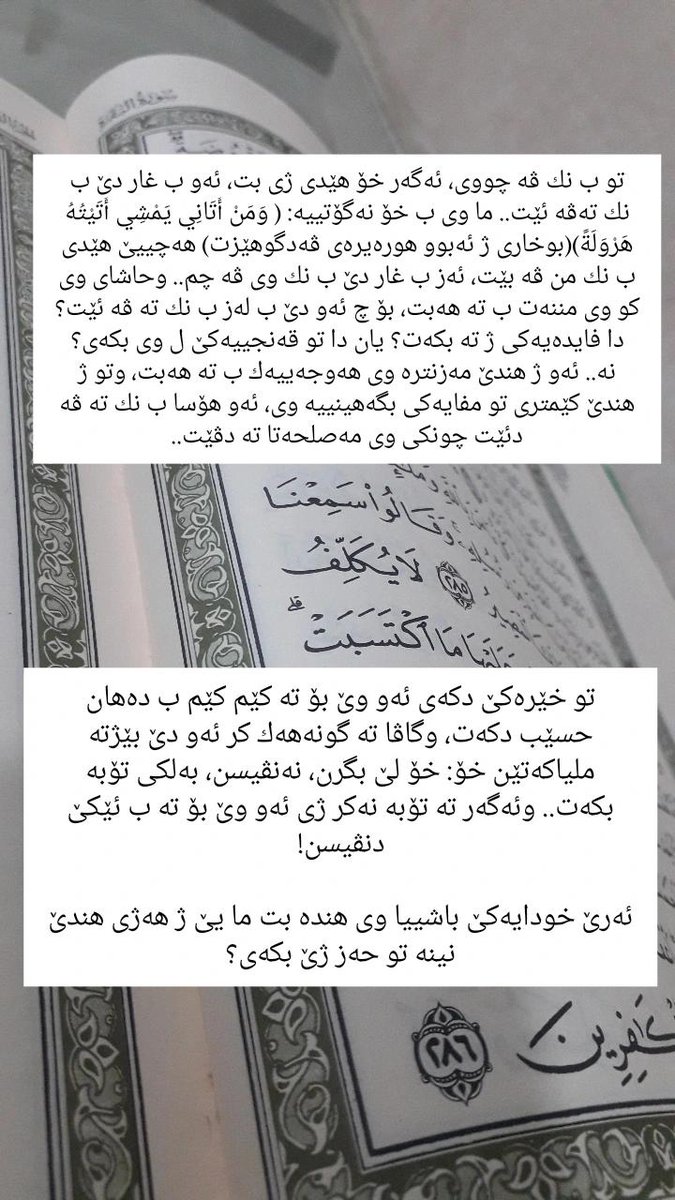 تو ب نك ڤه‌ چووی، ئه‌گه‌ر خۆ هێدی ژی بت، ئه‌و ب غار دێ ب
نك ته‌ڤه‌ ئێت.. ما وی ب خۆ نه‌گۆتییه‌: ( وَمَنْ أَتَانِي يَمْشِي أَتَيْتُهُ
هَرْوَلَةً)(بوخاری ژ ئه‌بوو هوره‌یره‌ی ڤه‌دگوهێزت) هه‌چییێ هێدی
ب نك من ڤه‌ بێت، ئه‌ز ب غار دێ ب نك وی ڤه‌ چم.. وحاشای وی
كو وی مننه‌ت ب ته‌ هه‌بت، بۆ چ ئه‌و دێ ب له‌ز ب نك ته‌ ڤه‌ ئێت؟
دا فایده‌یه‌كی ژ ته‌ بكه‌ت؟ یان دا تو قه‌نجییه‌كێ ل وی بكه‌ی؟
نه‌.. ئه‌و ژ هندێ مه‌زنتره‌ وی هه‌وجه‌ییه‌ك ب ته‌ هه‌بت، وتو ژ
هندێ كێمتری تو مفایه‌كی بگه‌هینییه‌ وی، ئه‌و هۆسا ب نك ته‌ ڤه‌
دئێت چونكی وی مه‌صلحه‌تا ته‌ دڤێت..
وَقَالُوا۟ سَمِعْنَا
٢٨٥ لَا يُكَلِّفُ
مَا ٱكْتَسَبَتْ ۗ
تو خێره‌كێ دكه‌ی ئه‌و وێ بۆ ته‌ كێم كێم ب ده‌هان
حسێب دكه‌ت، وگاڤا ته‌ گونه‌هه‌ك كر ئه‌و دێ بێژته‌
ملیاكه‌تێن خۆ: خۆ لێ بگرن، نه‌نڤیسن، به‌لكی تۆبه‌
بكه‌ت.. وئه‌گه‌ر ته‌ تۆبه‌ نه‌كر ژی ئه‌و وێ بۆ ته‌ ب ئێكێ
دنڤیسن!
ئه‌رێ خودایه‌كێ باشییا وی هنده‌ بت ما یێ ژ هه‌ژی هندێ
نینه‌ تو حه‌ز ژێ بكه‌ی؟
ٱلْكَـٰفِرِينَ ٢٨٦